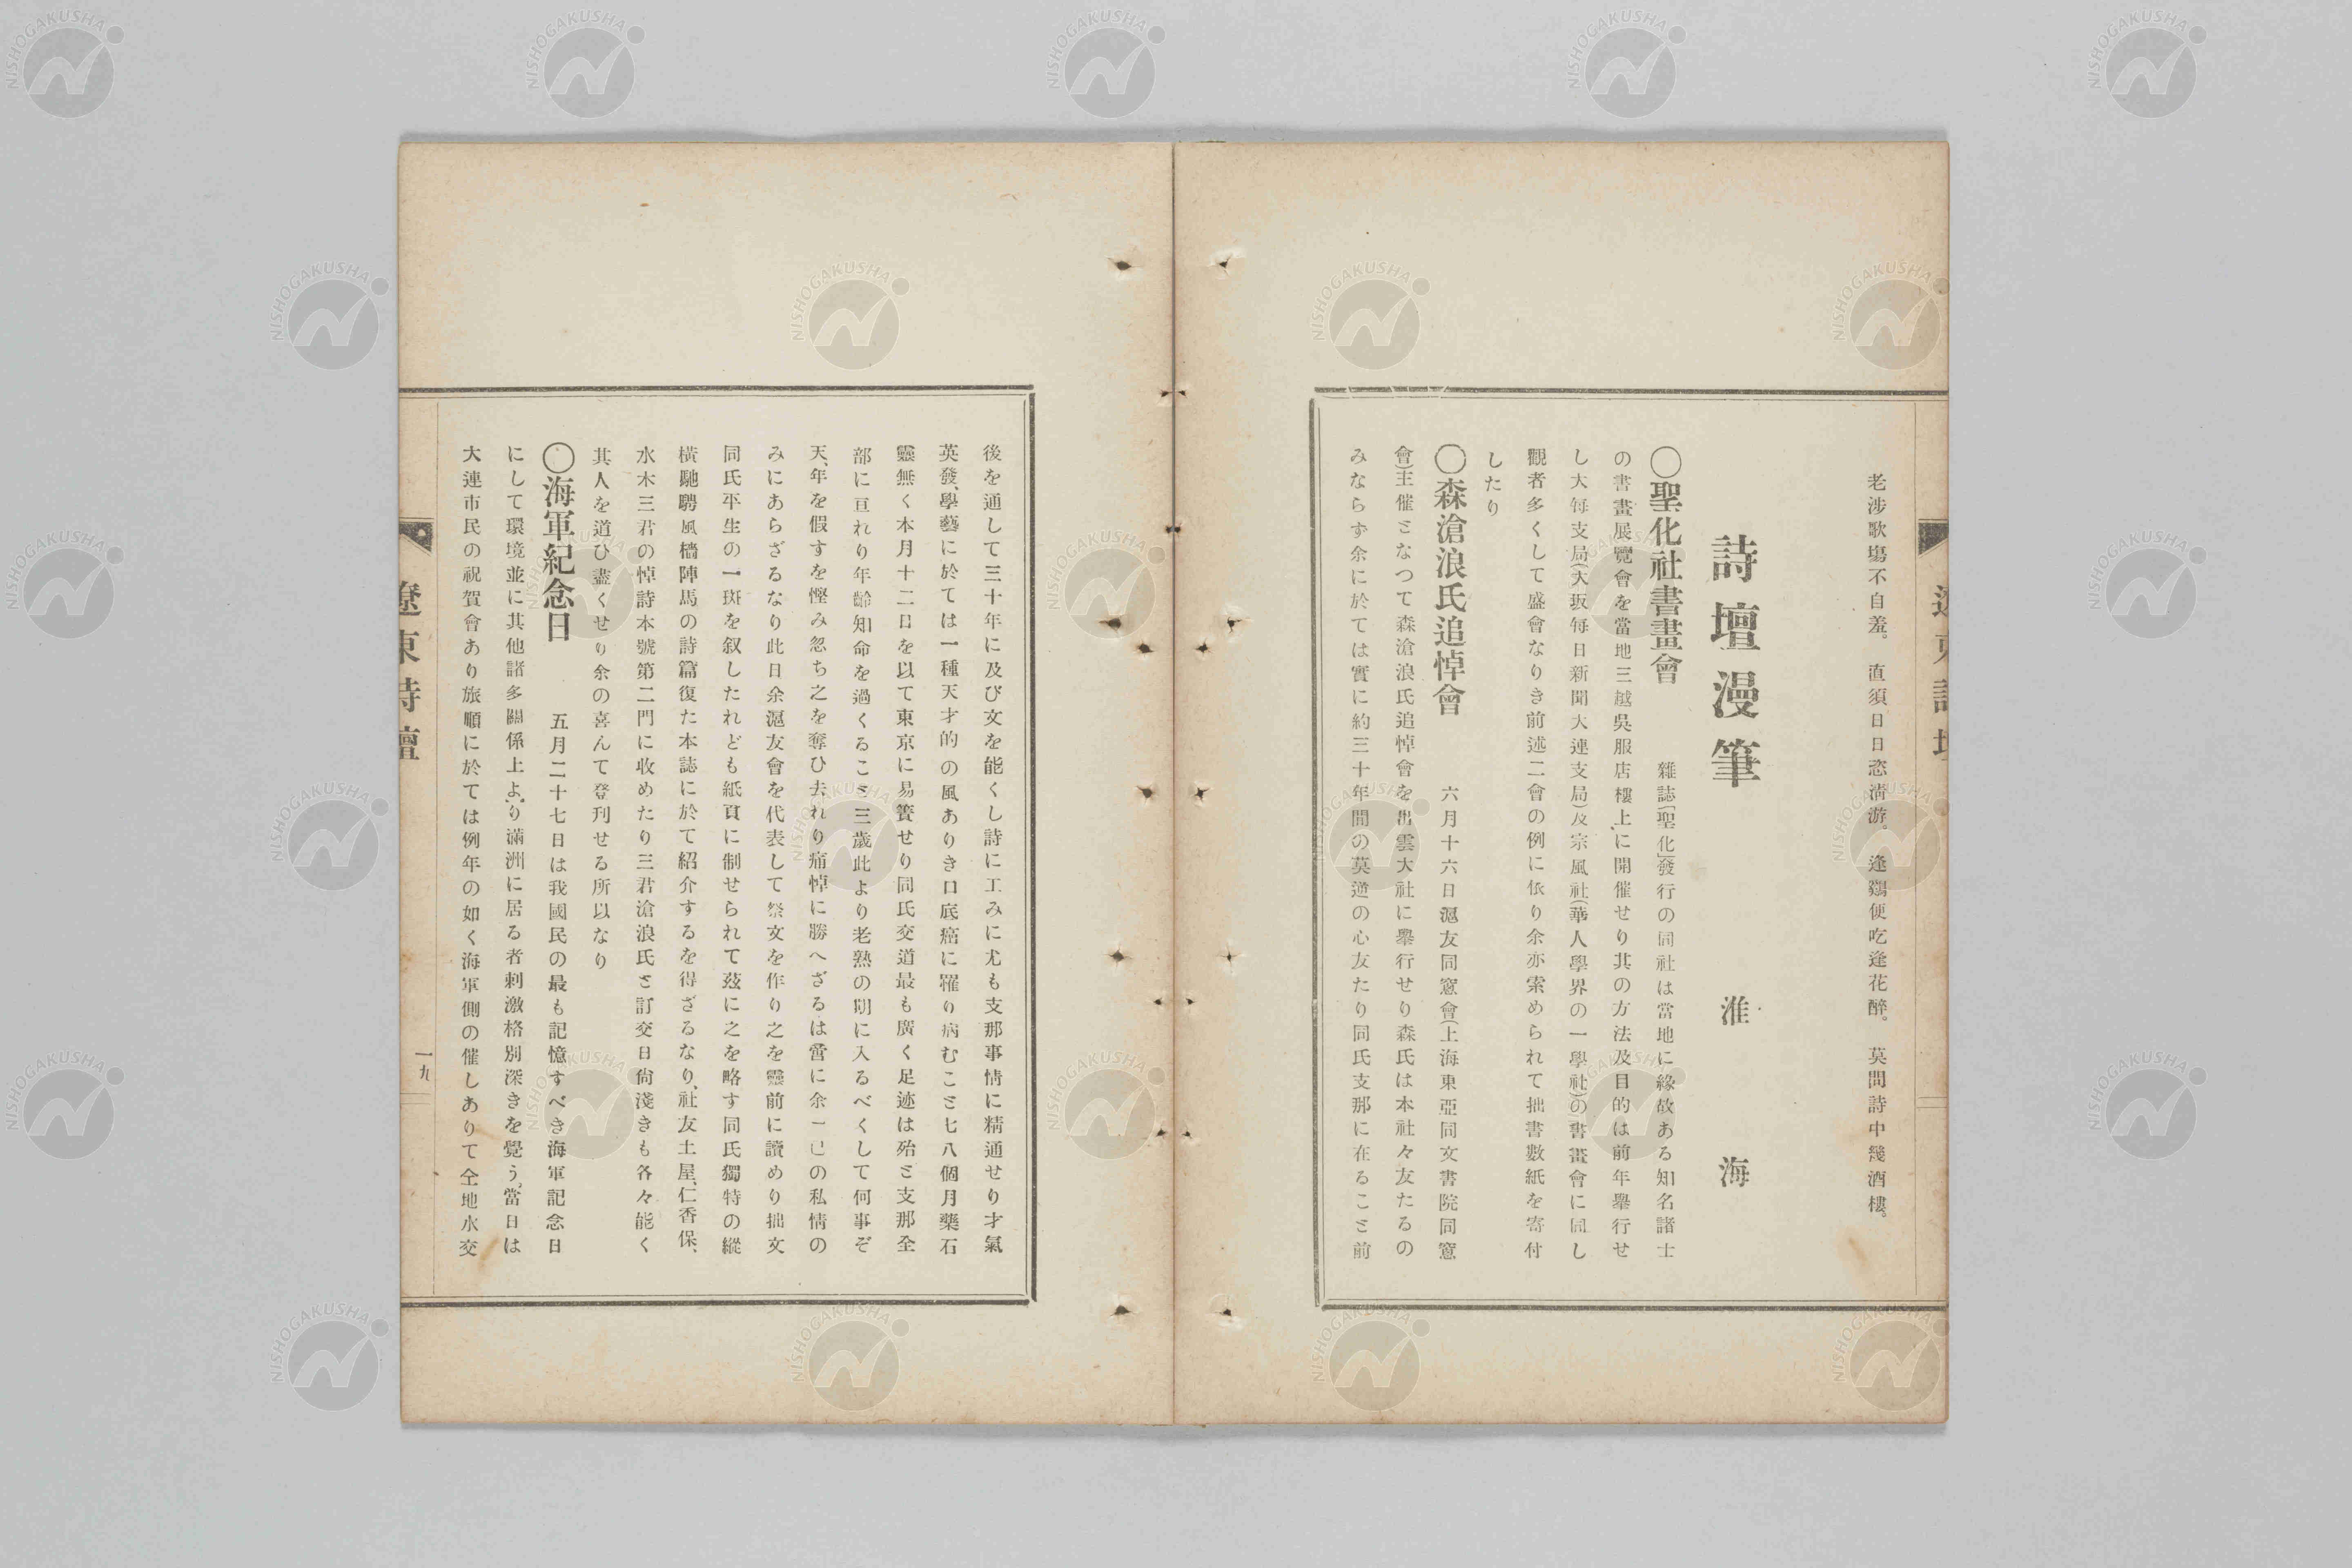 老涉歌塲不自羞。 直須日日恣淸游。 逢鷄便吃逢花醉。 莫問詩中幾酒樓。
詩壇漫筆 淮海
〇聖化社書畫會 雜誌「聖化」發行の同社は當地に緣故ある知名諸士
の書畫展覽會を當地三越吳服店樓上に開催せり其の方法及目的は前年舉行せ
し大每支局(大坂每日新聞大連支局)及宗風社(華人學界の一學社)の書畫會に同し
觀者多くして盛會なりき前述二會の例に依り余亦索められて拙書數紙を寄付
したり
〇森滄浪氏追悼會 六月十六日滬友同窻會(上海東亞同文書院同窻
會)主催となつて森滄浪氏追悼會を出雲大社に舉行せり森氏は本社々友たるの
みならず余に於ては實に約三十年間の莫逆の心友たり同氏支那に在ること前
後を通して三十年に及び文を能くし詩に工みに尤も支那事情に精通せり才氣
英發、學藝に於ては一種天才的の風ありき口底癌に罹り病むこと七八個月藥石
靈無く本月十二日を以て東京に易簀せり同氏交道最も廣く足迹は殆と支那全
部に亘れり年齡知命を過くること三歲此より老熟の期に入るべくして何事ぞ
天、年を假すを慳み忽ち之を奪ひ去れり痛悼に勝へざるは啻に余一己の私情の
みにあらざるなり此日余滬友會を代表して祭文を作り之を靈前に讀めり拙文
同氏平生の一斑を叙したれども紙頁に制せられて玆に之を略す同氏獨特の縱
橫馳騁風檣陣馬の詩篇復た本誌に於て紹介するを得ざるなり、社友土屋、仁香保、
水木三君の悼詩本號第二門に收めたり三君滄浪氏と訂交日尙淺きも各々能く
其人を道ひ盡くせり余の喜んて登刊せる所以なり
〇海軍紀念日 五月二十七日は我國民の最も記憶すべき海軍記念日
にして環境並に其他諸多關係上より滿洲に居る者刺激格別深きを覺う。當日は
大連市民の祝賀會あり旅順に於ては例年の如く海軍側の催しありて仝地水交
遼東詩壇
一九